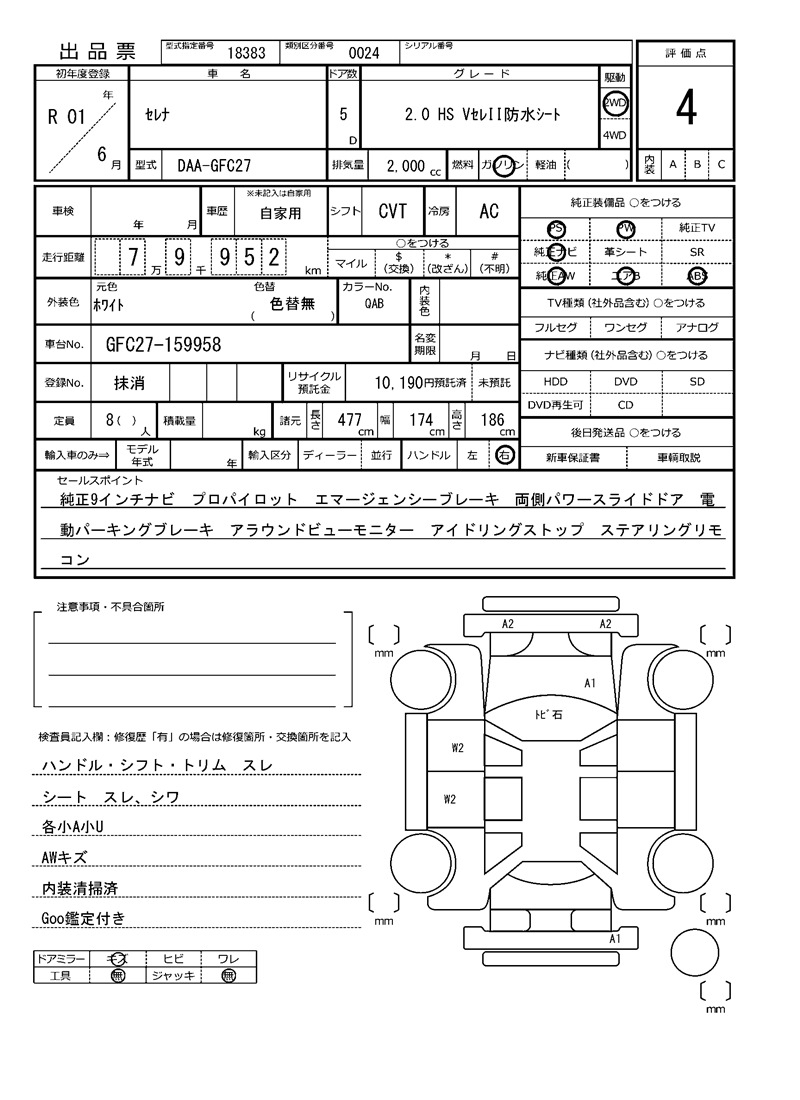 出品票
型式指定番号 18383 類別区分番号 0024 シリアル番号
評価点
4
内装 A B C
初年度登録 車名 ドア数 グレード 駆動
R 01 年 6 月
セレナ 5 D 2.0 HS VセレII防水シート 2WD
4WD
型式 DAA-GFC27 排気量 2.000 cc 燃料 ガソリン 軽油 ( )
車検 年 月 車歴 ※未記入は自家用 自家用 シフト CVT 冷房 AC
走行距離 7 万 9 千 9 5 2 km
○をつける
マイル $ (交換) * (改ざん) # (不明)
外装色 元色 ホワイト 色替 ( 色替無 ) カラーNo. QAB 内装色
車台No. GFC27-159958 名変期限 月 日
登録No. 抹消 リサイクル預託金 10,190円預託済 未預託
定員 8( ) 人 積載量 kg 諸元 長さ 477 cm 幅 174 cm 高さ 186 cm
輸入車のみ⇒ モデル年式 年 輸入区分 ディーラー 並行 ハンドル 左 右
純正装備品 ○をつける
PS PW 純正TV
純正ナビ 革シート SR
純正AW エアB ABS
TV種類(社外品含む)○をつける
フルセグ ワンセグ アナログ
ナビ種類(社外品含む)○をつける
HDD DVD SD
DVD再生可 CD
後日発送品 ○をつける
新車保証書 車輌取説
セールスポイント
純正9インチナビ プロパイロット エマージェンシーブレーキ 両側パワースライドドア 電
動パーキングブレーキ アラウンドビューモニター アイドリングストップ ステアリングリモ
コン
注意事項・不具合箇所
検査員記入欄:修復歴「有」の場合は修復箇所・交換箇所を記入
ハンドル・シフト・トリム スレ
シート スレ、シワ
各小A小U
AWキズ
内装清掃済
Goo鑑定付き
ドアミラー キズ ヒビ ワレ
工具 無 ジャッキ 無
A2 A2
mm mm
A1
トビ石
W2
W2
mm mm
A1
mm